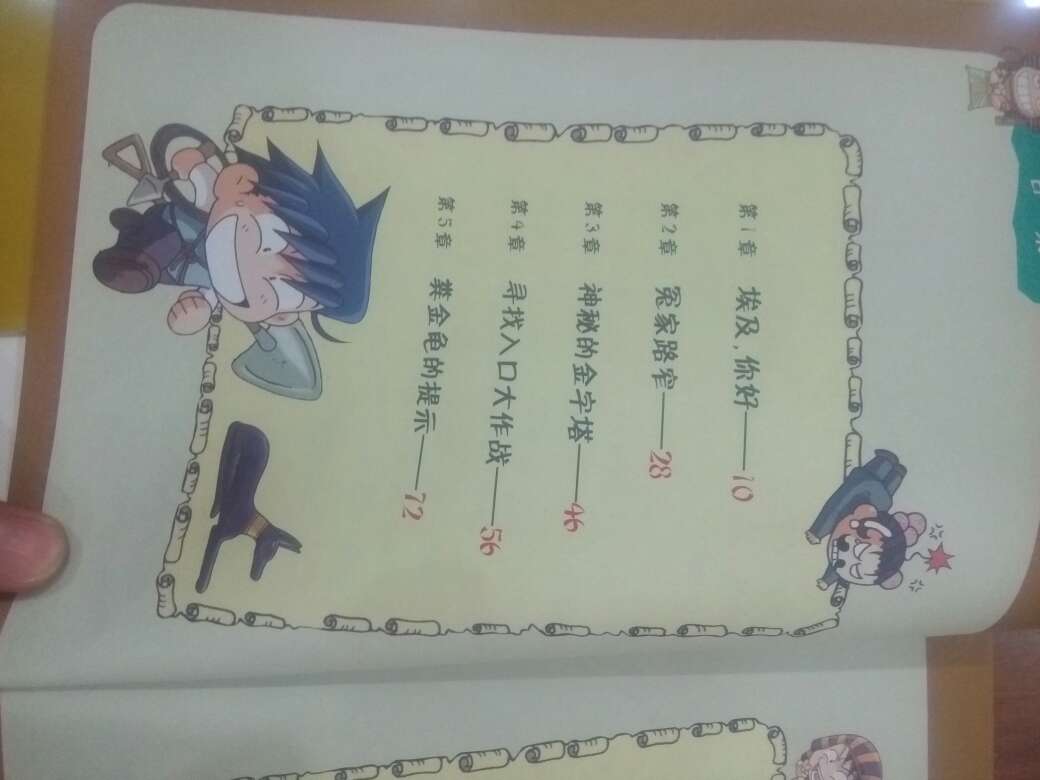 目录
第1章 埃及,你好——10
第2章 冤家路窄——28
第3章 神秘的金字塔——46
第4章 寻找入口大作战——56
第5章 粪金龟的提示——72